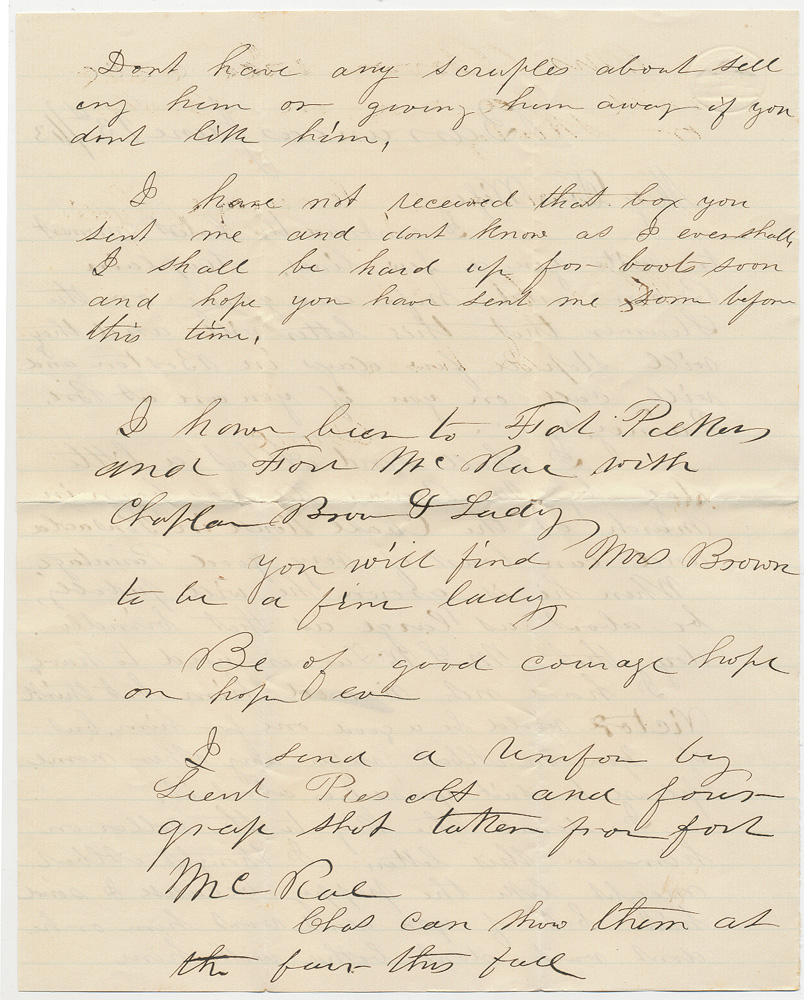 Dont have any scruples about sell
ing him or giving him away if you
dont like him,
I have not received that box you
sent me and dont know as I ever shall,
I shall be hard up for boots soon
and hope you have sent me som before
this time,
I have been to Fort Pickens
and Fort McRae with
Chaplan Brown & Lady
you will find Mrs Brown
to be a fine lady
Be of good courage hope
on hope ever
I send a uniform by
Lieut and four
grape shot taken from fort
McRae
Chas can show them at
the fair this fall